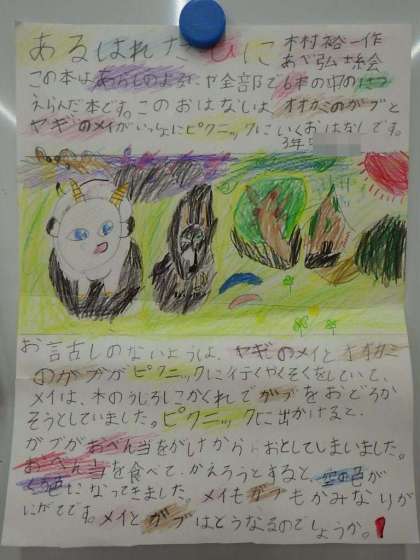 あるはれたひに 木村裕一作
あべ弘士絵
この本はあらしのよるに や全部で6本の中の
えらんだ本です。このおはなしは、オオカミのガブと
ヤギのメイがいっしょにピクニックにいくおはなしです。
3年
お話しのないようは、ヤギのメイとオオカミ
のガブがピクニックに行くやくそくをしていて、
メイは、木のうしろにかくれてガブをおどろか
そうとしていました。ピクニックに出かけると、
ガブがおべん当をがけからおとしてしまいました。
おべん当を食べて、かえろうとすると、空の色が
くろ色になってきました。メイもガブもかみなりが
にがてです。メイとガブはどうなるのでしょうか。!